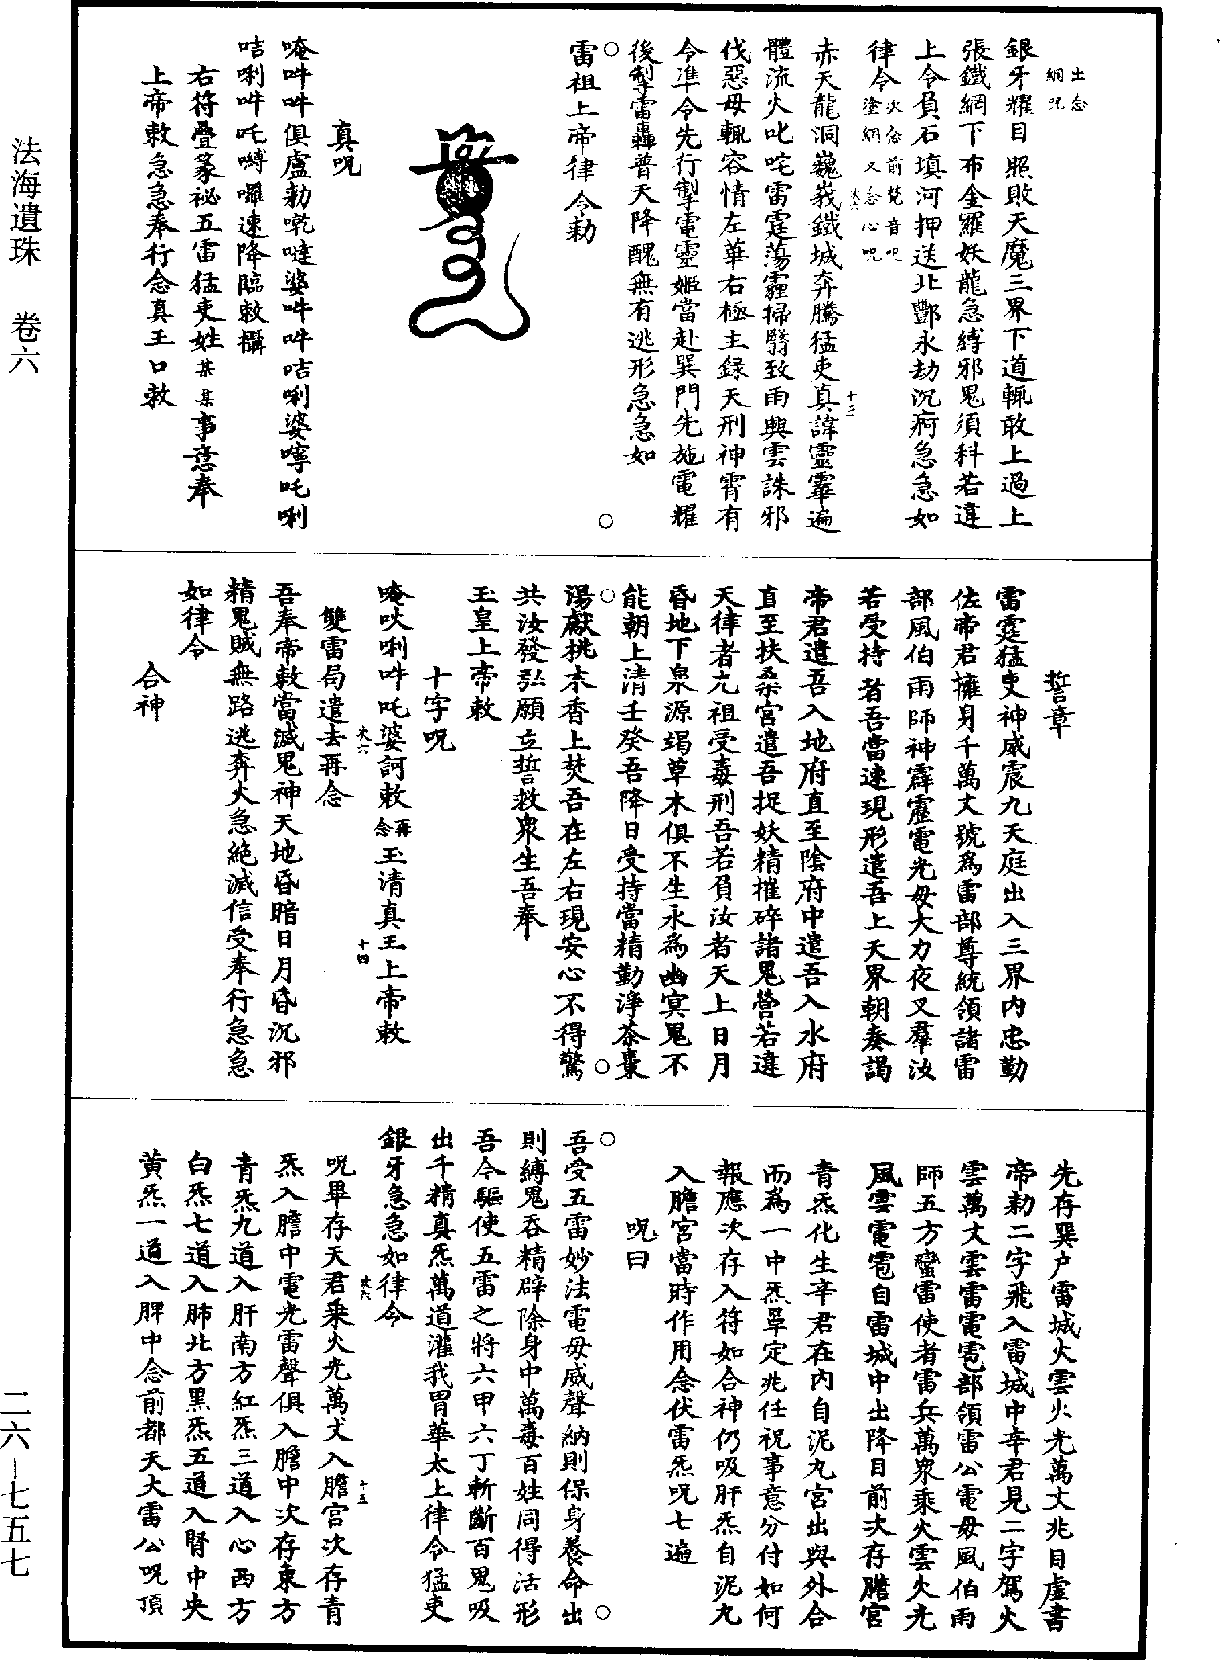 法海遺珠 卷六
二六-七五七
土念
網咒
銀牙耀目照敗天魔三界下道輒敢上過上
張鐵網下布金羅妖龍急縛邪鬼須科若違
上令負石填河押送北酆永劫沉痾急急如
律令次念前梵音咒
塗網又念心咒
赤天龍洞巍峩鐵城奔騰猛吏真諱靈霏遍
體流火叱咤雷霆蕩霾掃翳致雨興雲誅邪
伐惡毋輒容情左華右極主錄天刑神霄有
令準令先行掣電靈姬當赴巽門先施電耀
後掣雷轟普天降醜無有逃形急急如
雷祖上帝律令勅
真咒
唵吽吽俱盧勅嚩噠婆吽吽咭唎婆嚀吒唎
咭唎吽吒嚩囉速降臨敕攝
右符疊篆祕五雷猛吏姓某某事意奉
上帝敕急急奉行念真王口敕
誓章
雷霆猛吏神威震九天庭出入三界内忠勤
佐帝君擁身千萬丈號為雷部尊統領諸雷
部風伯雨師神霹靂電光母大力夜叉羣汝
若受持者吾當速現形遣吾上天界朝奏謁
帝君遣吾入地府直至陰府中遣吾入水府
直至扶桑宮遣吾捉妖精摧碎諸鬼營若違
天律者九祖受毒刑吾若負汝者天上日月
昏地下泉源竭草木俱不生永為幽冥鬼不
能朝上清壬癸吾降日受持當精勤淨茶棗
湯獻桃木香上焚吾在左右現安心不得驚
共汝發弘願立誓救衆生吾奉
玉皇上帝敕
十字咒
唵吙唎吽吒婆訶敕再念玉清真王上帝敕
雙雷局遣去再念
吾奉帝敕當滅鬼神天地昏暗日月昏沉邪
精鬼賊無路逃奔火急絕滅信受奉行急急
如律令
合神
先存巽戶雷城火雲火光萬丈兆目虛書
帝勅二字飛入雷城中辛君見二字駕火
雲萬丈雲雷電雹部領雷公電母風伯雨
師五方蠻雷使者雷兵萬衆乘火雲火光
風雲雷雹自雷城中出降目前次存膽宮
青炁化生辛君在内自泥丸宮出與外合
而為一中炁罩定兆任祝事意分付如何
報應次存入符如合神仍吸肝炁自泥丸
入膽宮當時作用念伏雷炁咒七遍
咒曰
吾受五雷妙法電母威聲納則保身養命出
則縛鬼吞精辟除身中萬毒百姓同得活形
吾今驅使五雷之將六甲六丁斬斷百鬼吸
出千精真炁萬道灌我胃華太上律令猛吏
銀牙急急如律令
咒畢存天君乘火光萬丈入膽宮次存青
炁入膽中電光雷聲俱入膽中次存東方
青炁九道入肝南方紅炁三道入心西方
白炁七道入肺北方黑炁五道入腎中央
黃炁一道入脾中念前都天大雷公咒頂